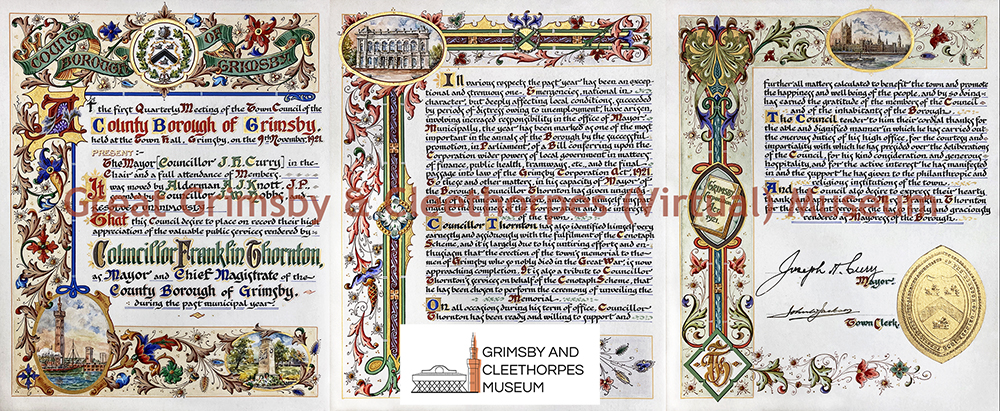 COUNTY OF
BOROUGH GRIMSBY
At the first Quarterly Meeting of the Town Council of the
County Borough of Grimsby,
held at the Town Hall, Grimsby, on the 9th November, 1921.
PRESENT:-
The Mayor (Councillor J. H. Curry) in the
Chair and a full attendance of Members.
It was moved by Alderman J.
seconded by Councillor
That this Council desire to place on record their high
appreciation of the valuable public services rendered by
Councillor Franklin Thornton,
as Mayor and Chief Magistrate of the
County Borough of Grimsby.
During the past municipal year.
In various respects the past year has been an excep-
tional and strenuous one. Emergencies, national in
character, but deeply affecting local conditions, succeeded
by periods of distress owing to unemployment, have arisen,
involving increased responsibility in the office of Mayor.
Municipally, the year has been marked as one of the most
important in the annals of the Borough by the successful
promotion, in Parliament, of a Bill conferring upon the
Corporation wider powers of local government in matters
of finance, public health, tramways, etc., and the final
passage into law of the Grimsby Corporation Act, 1921.
To these and other matters, in his capacity of Mayor of
the Borough, Councillor Thornton has given
Councillor Thornton has also identified himself very
earnestly and assiduously with the fulfilment of the Cenotaph
Scheme, and it is largely due to his untiring efforts and en-
thusiasm that the erection of the town's memorial to the
men of Grimsby who so nobly died in the Great War, is now
approaching completion. It is also a tribute to Councillor
Thornton's services on behalf of the Cenotaph Scheme, that
he has been chosen to perform the ceremony of unveiling the
Memorial.
On all occasions during his term of office, Councillor
Thornton has been ready and willing to support and
further all matters calculated to benefit the town and promote
the happiness and well being of the people, and by so doing
has earned the gratitude of the members of the Council
and of the inhabitants of the Borough.
The Council tender to him their cordial thanks for
the able and dignified manner in which he has carried out
the onerous duties of his high office, for the courtesy and
impartiality with which he has presided over the deliberations
of the Council, for his kind consideration and generous
hospitality, and for the active interest he has manifested
in and the support he has given to the philanthropic and
religious institutions of the town.
And the Council also desire to express their hearty
thanks
rendered as Mayoress of the Borough.
GRIMSBY
Joseph H. Curry
Mayor.
Town Clerk.
Great Grimsby & Cleethorpes (Virtual) Museum
GRIMSBY AND
CLEETHORPES
MUSEUM